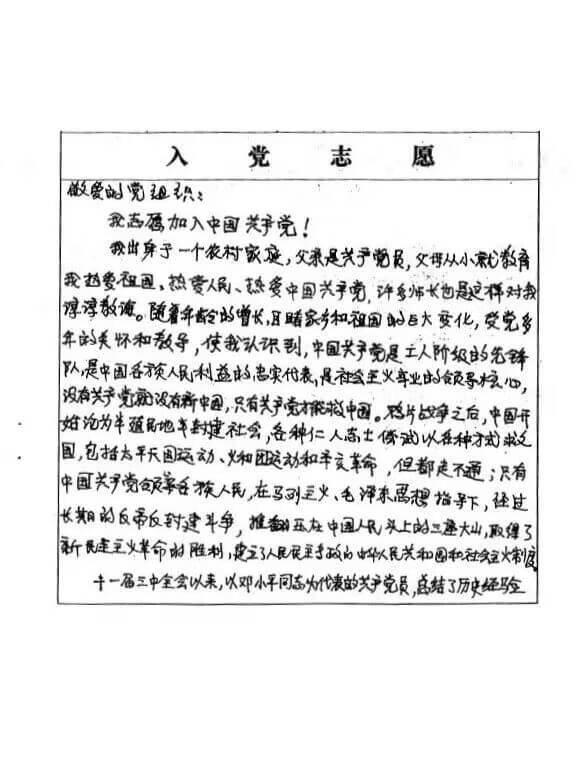 入党志愿
敬爱的党组织：
我志愿加入中国共产党！
我出身于一个农村家庭，父亲是共产党员，父母从小就教育
我热爱祖国、热爱人民、热爱中国共产党，许多师长也是这样对我
谆谆教诲。随着年龄的增长，目睹家乡和祖国的巨大变化，受党多
年的关怀和教导，使我认识到，中国共产党是工人阶级的先锋
队，是中国各族人民利益的忠实代表，是社会主义事业的领导核心，
没有共产党就没有新中国，只有共产党才能救中国。鸦片战争之后，中国开
始沦为半殖民地半封建社会，各种仁人志士尝试以各种方式救
国，包括太平天国运动、义和团运动和辛亥革命，但都走不通；只有
中国共产党领导各族人民，在马列主义、毛泽东思想指导下，经过
长期的反帝反封建斗争，推翻压在中国人民头上的三座大山，取得了
新民主主义革命的胜利，建立了人民民主专政的中华人民共和国和社会主义制度。
十一届三中全会以来，以邓小平同志为代表的共产党员，总结了历史经验